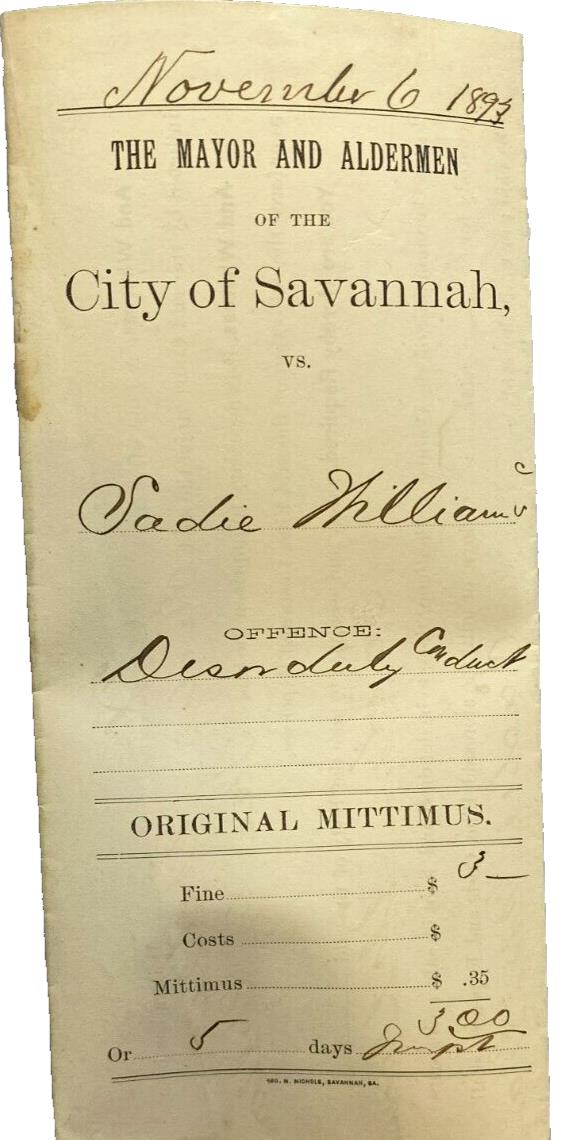 November 6 1893
THE MAYOR AND ALDERMEN
OF THE
City of Savannah,
VS.
c
Sadie Williams
OFFENCE:
Disorderly Conduct
ORIGINAL MITTIMUS.
Fine $ 3—
Costs $
Mittimus $ .35
3 00
Or 5 days Impt
GEO. N. NICHOLS, SAVANNAH, GA.